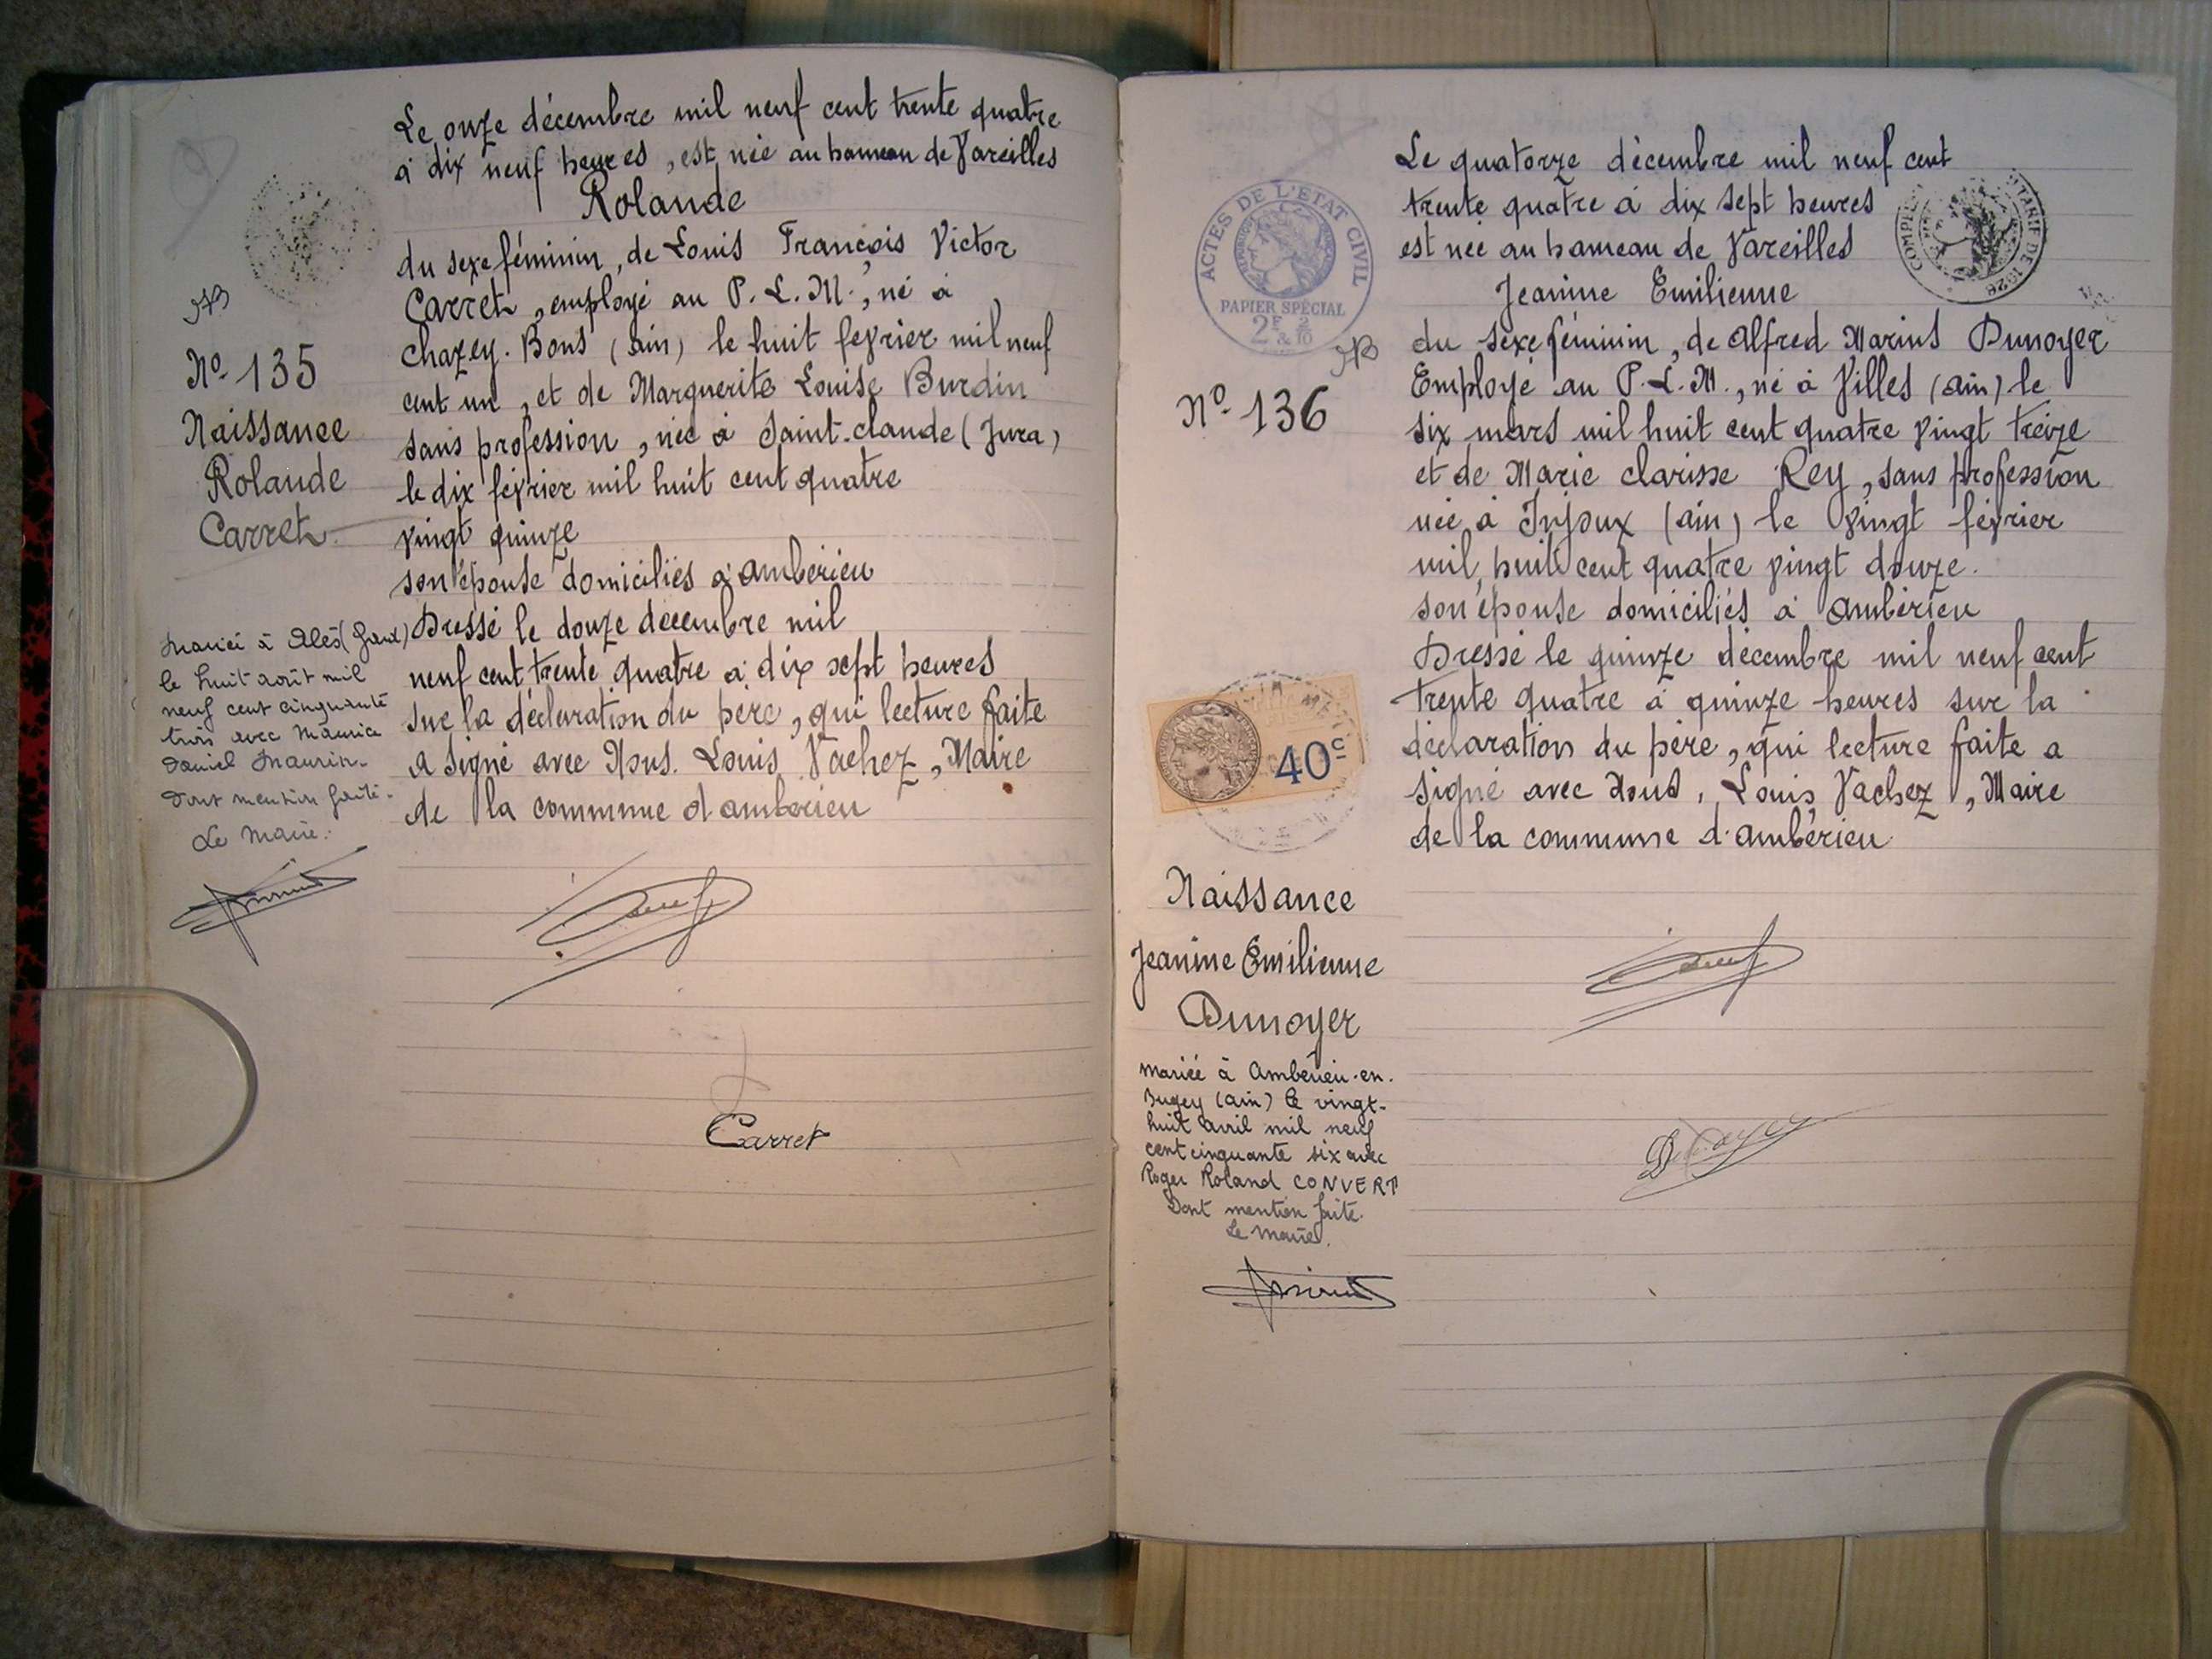 Le onze décembre mil neuf cent trente quatre
à dix neuf heures, est née au hameau de Vareilles
Rolande
du sexe féminin, de Louis François Victor
Carret, employé au P. L. M., né à
Chazey. Bons (Ain) le huit février mil neuf
cent un, et de Marguerite Louise Burdin
sans profession, née à Saint-Claude (Jura)
le dix février mil huit cent quatre
vingt quinze
son épouse domiciliés à Ambérieu
Dressé le douze décembre mil
neuf cent trente quatre à dix sept heures
sur la déclaration du père, qui lecture faite
a signé avec Nous. Louis Vachez, Maire
de la commune d'ambérieu
Carret
No 135
Naissance
Rolande
Carret
Mariée à Alès (Gard)
le huit août mil
neuf cent cinquante
trois avec Maurice
Daniel Maurin.
Dont mention faite.
Le Maire.
Le quatorze décembre mil neuf cent
trente quatre à dix sept heures
est née au hameau de Vareilles
Jeanine Emilienne
du sexe féminin, de Alfred Marius Dunoyer
Employé au P. L. M., né à Villes (Ain) le
six mars mil huit cent quatre vingt treize
et de Marie Clarisse Rey, sans profession
née à Injoux (Ain) le vingt février
mil huit cent quatre vingt douze.
son épouse domiciliés à Ambérieu
Dressé le quinze décembre mil neuf cent
trente quatre à quinze heures sur la
déclaration du père, qui lecture faite a
signé avec Nous, Louis Vachez, Maire
de la commune d'Ambérieu
ACTES DE L'ETAT CIVIL
PAPIER SPÉCIAL
2F & 2/10
TARIF DE 1926
No 136
40c
Naissance
Jeanine Emilienne
Dunoyer
Mariée à Ambérieu-en-
Bugey (Ain) le vingt-
huit avril mil neuf
cent cinquante six avec
Roger Roland CONVERT
Dont mention faite.
Le Maire.